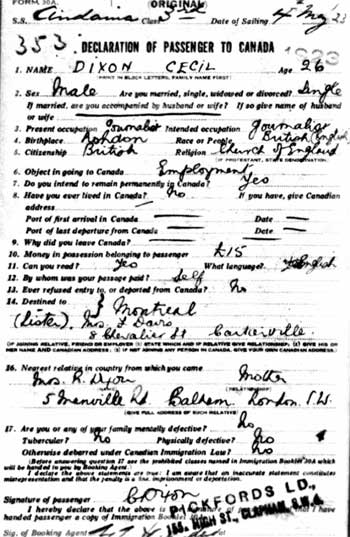 FORM 30A. ORIGINAL
S.S. Andania Class 3rd Date of Sailing 4th May 23
353. DECLARATION OF PASSENGER TO CANADA
1. NAME DIXON CECIL Age 26
(PRINT IN BLOCK LETTERS, FAMILY NAME FIRST)
2. Sex Male Are you married, single, widowed or divorced? Single
If married, are you accompanied by husband or wife? If so give name of husband
or wife
3. Present occupation Journalist Intended occupation Journalist
4. Birthplace London Race or People British (English)
5. Citizenship British Religion Church of England
(IF PROTESTANT, STATE DENOMINATION)
6. Object in going to Canada Employment
7. Do you intend to remain permanently in Canada? Yes
8. Have you ever lived in Canada? No If you have, give Canadian
address
Port of first arrival in Canada Date
Port of last departure from Canada Date
9. Why did you leave Canada?
10. Money in possession belonging to passenger £15
11. Can you read? Yes What language? English
12. By whom was your passage paid? self
13. Ever refused entry to, or deported from Canada? No
14. Destined to Montreal
(Sister) Mrs Davis
8 Chevalier St Cartierville.
(IF JOINING RELATIVE, FRIEND OR EMPLOYER IS STATE WHICH AND IF RELATIVE GIVE RELATIONSHIP. (2) GIVE HIS OR
HER NAME AND CANADIAN ADDRESS. (3) IF NOT JOINING ANY PERSON IN CANADA, GIVE YOUR OWN CANADIAN ADDRESS)
16. Nearest relative in country from which you came
Mrs. R. Dixon Mother
(RELATIONSHIP)
5 Rd. Balham London S.W.
(GIVE FULL ADDRESS OF SUCH RELATIVE)
17. Are you or any of your family mentally defective? No
Tubercular? No Physically defective? No
Otherwise debarred under Canadian Immigration Law? No
(Before answering question 17 see the prohibited classes named in Immigration Booklet 30A which
will be handed to you by Booking Agent.)
I declare the above statements are true: I am aware that an inaccurate statement constitutes
misrepresentation and that the penalty is a fine, imprisonment or deportation.
Signature of passenger C Dixon
I hereby declare that the above is the signature of and that I have
handed passenger a copy of Immigration Booklet 30A
PICKFORDS LD.,
HIGH ST., CLAPHAM, S.W.4.
Sig. of Booking Agent